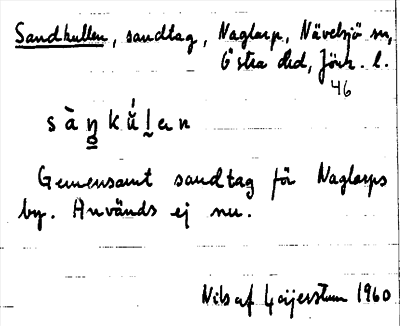 Sandkullen, sandtag, Naglarp, Nävelsjö sn,
Östra hd, Jönk. l.
46
sàŋkǘlen
Gemensamt sandtag för Naglarps
by. Används ej nu.
Nils af Geijerstam 1960